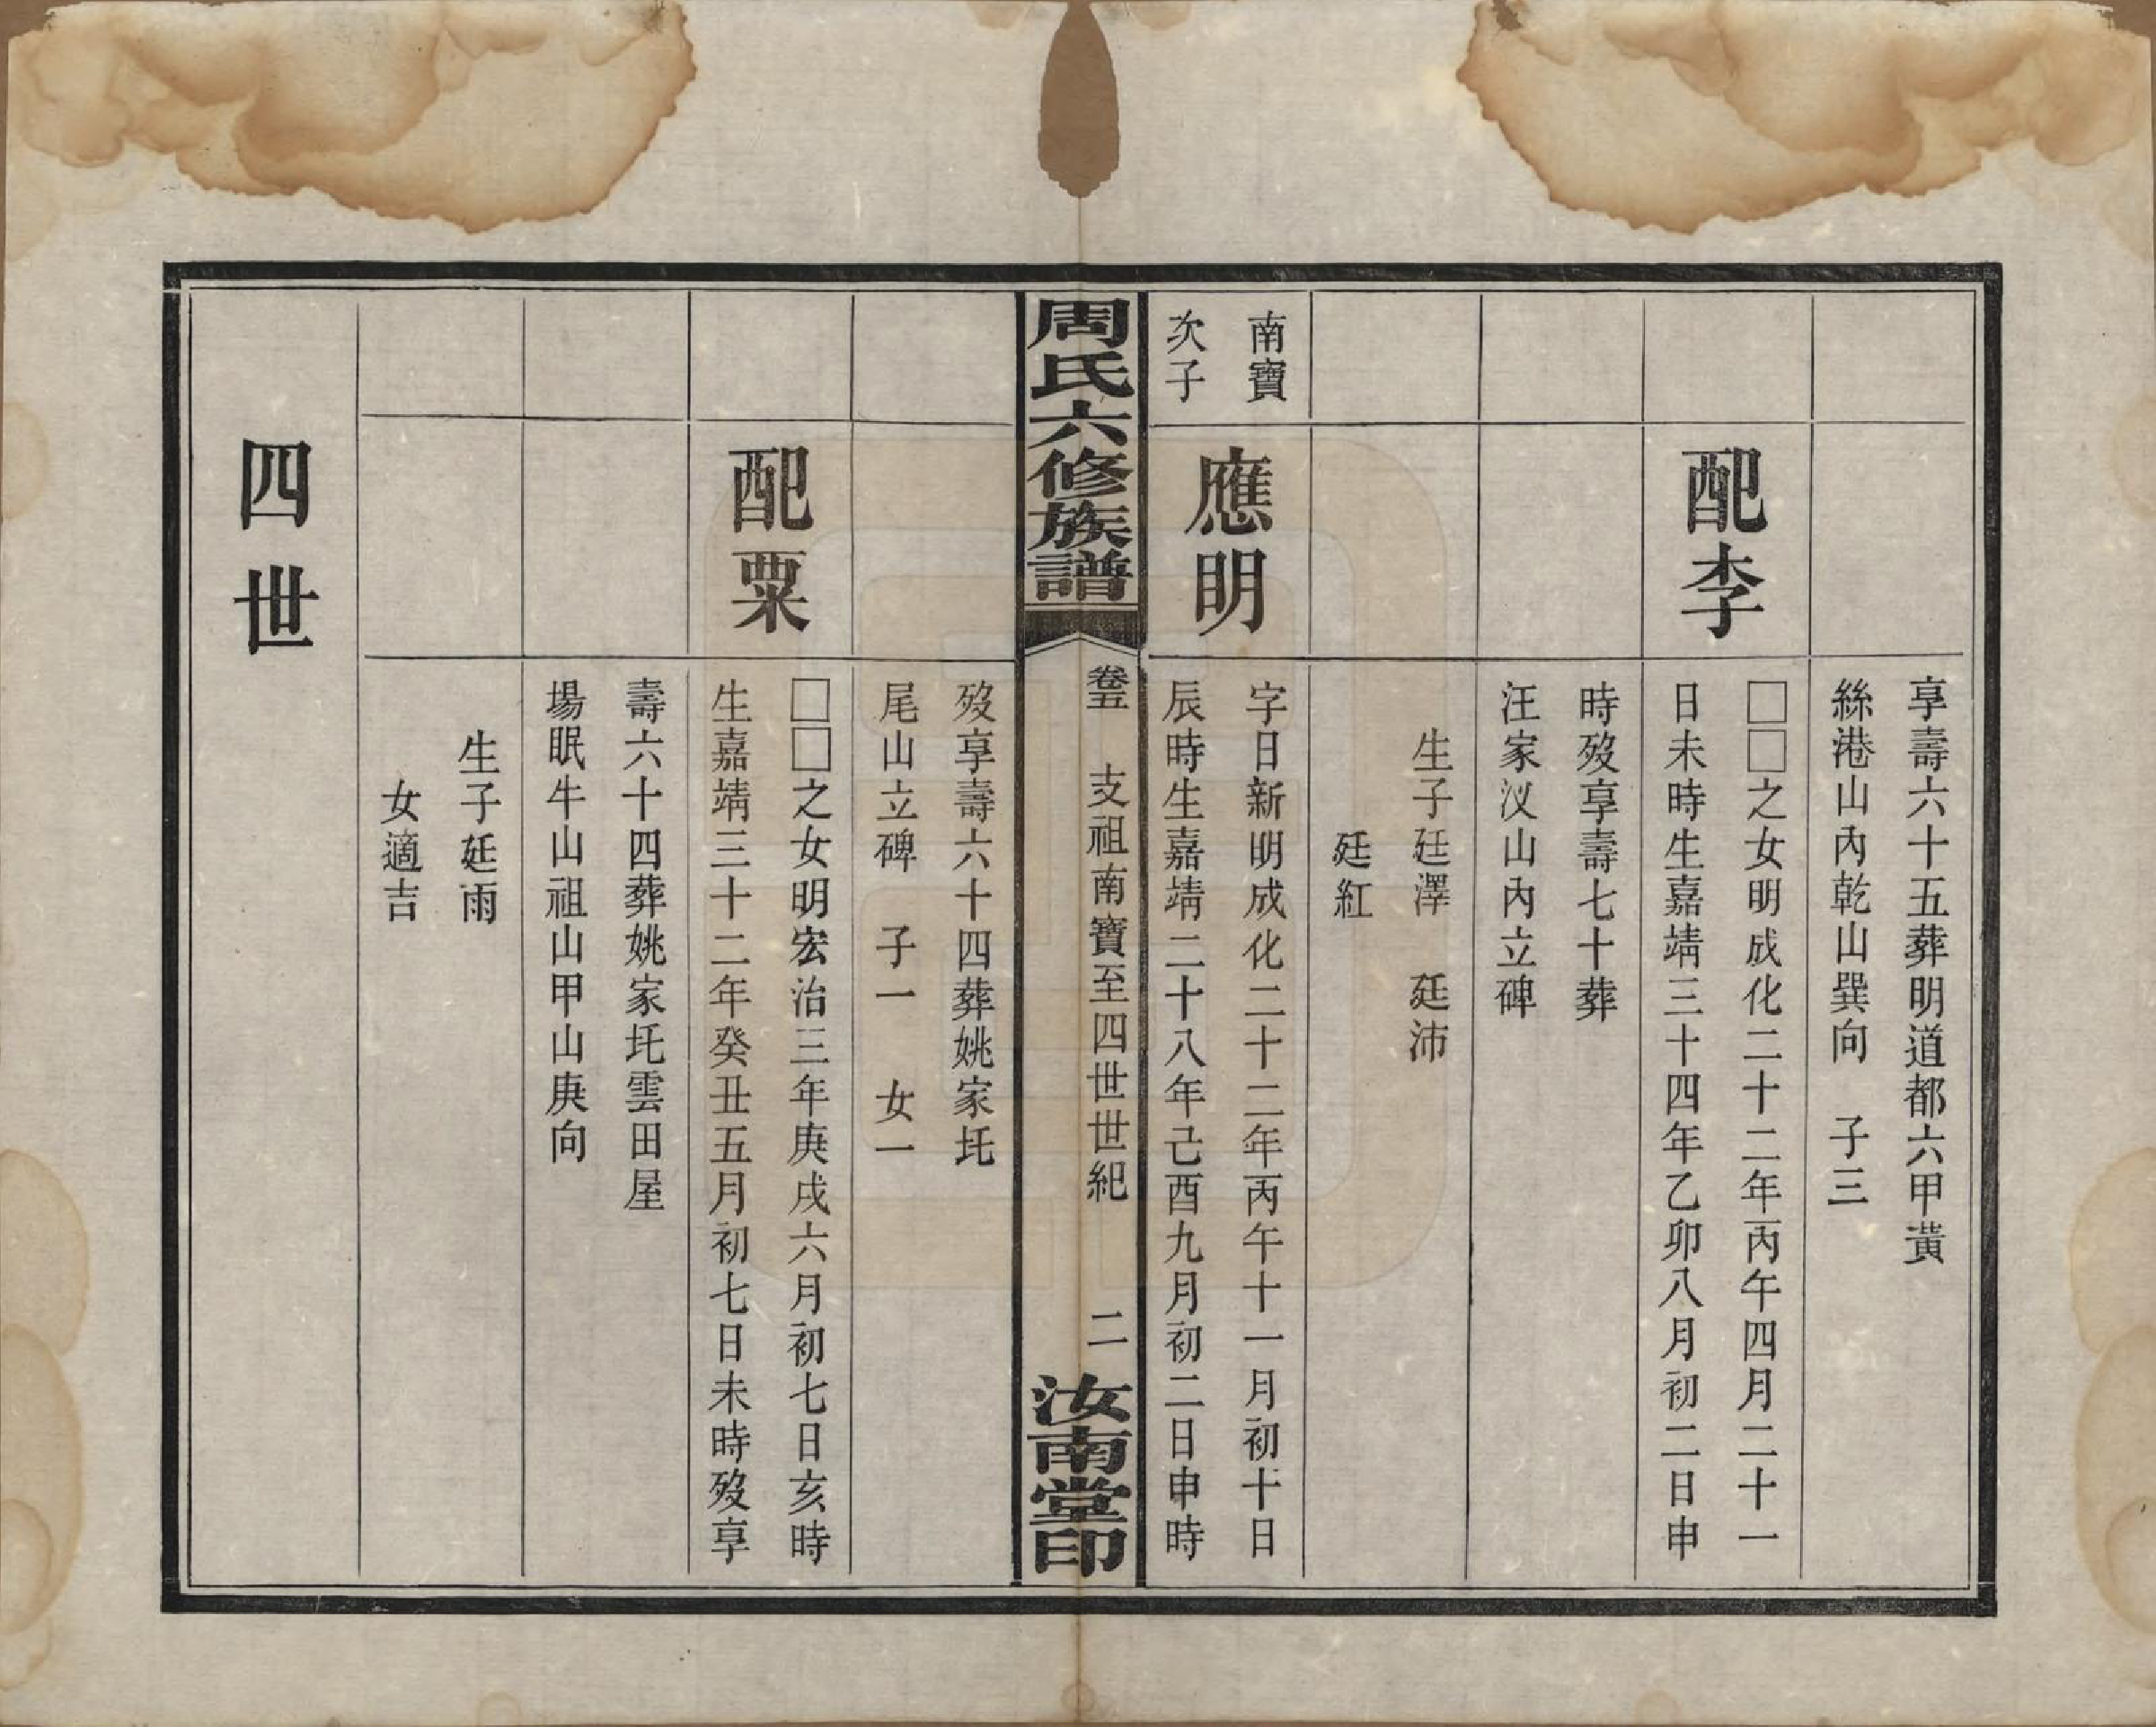 享壽六十五葬明道都六甲黃
絲港山內乾山巽向　子三
配李
□□之女明成化二十二年丙午四月二十一
日未時生嘉靖三十四年乙卯八月初二日申
時歿享壽七十葬
汪家汊山內立碑
生子廷澤　廷沛
廷紅
南寶
次子
應明
字日新明成化二十二年丙午十一月初十日
辰時生嘉靖二十八年己酉九月初二日申時
周氏六修族譜
卷五　支祖南寶至四世世紀　二
汝南堂印
歿享壽六十四葬姚家圫
尾山立碑　子一　女一
配粟
□□之女明宏治三年庚戌六月初七日亥時
生嘉靖三十二年癸丑五月初七日未時歿享
壽六十四葬姚家圫雲田屋
場眠牛山祖山甲山庚向
生子廷雨
女適吉
四世